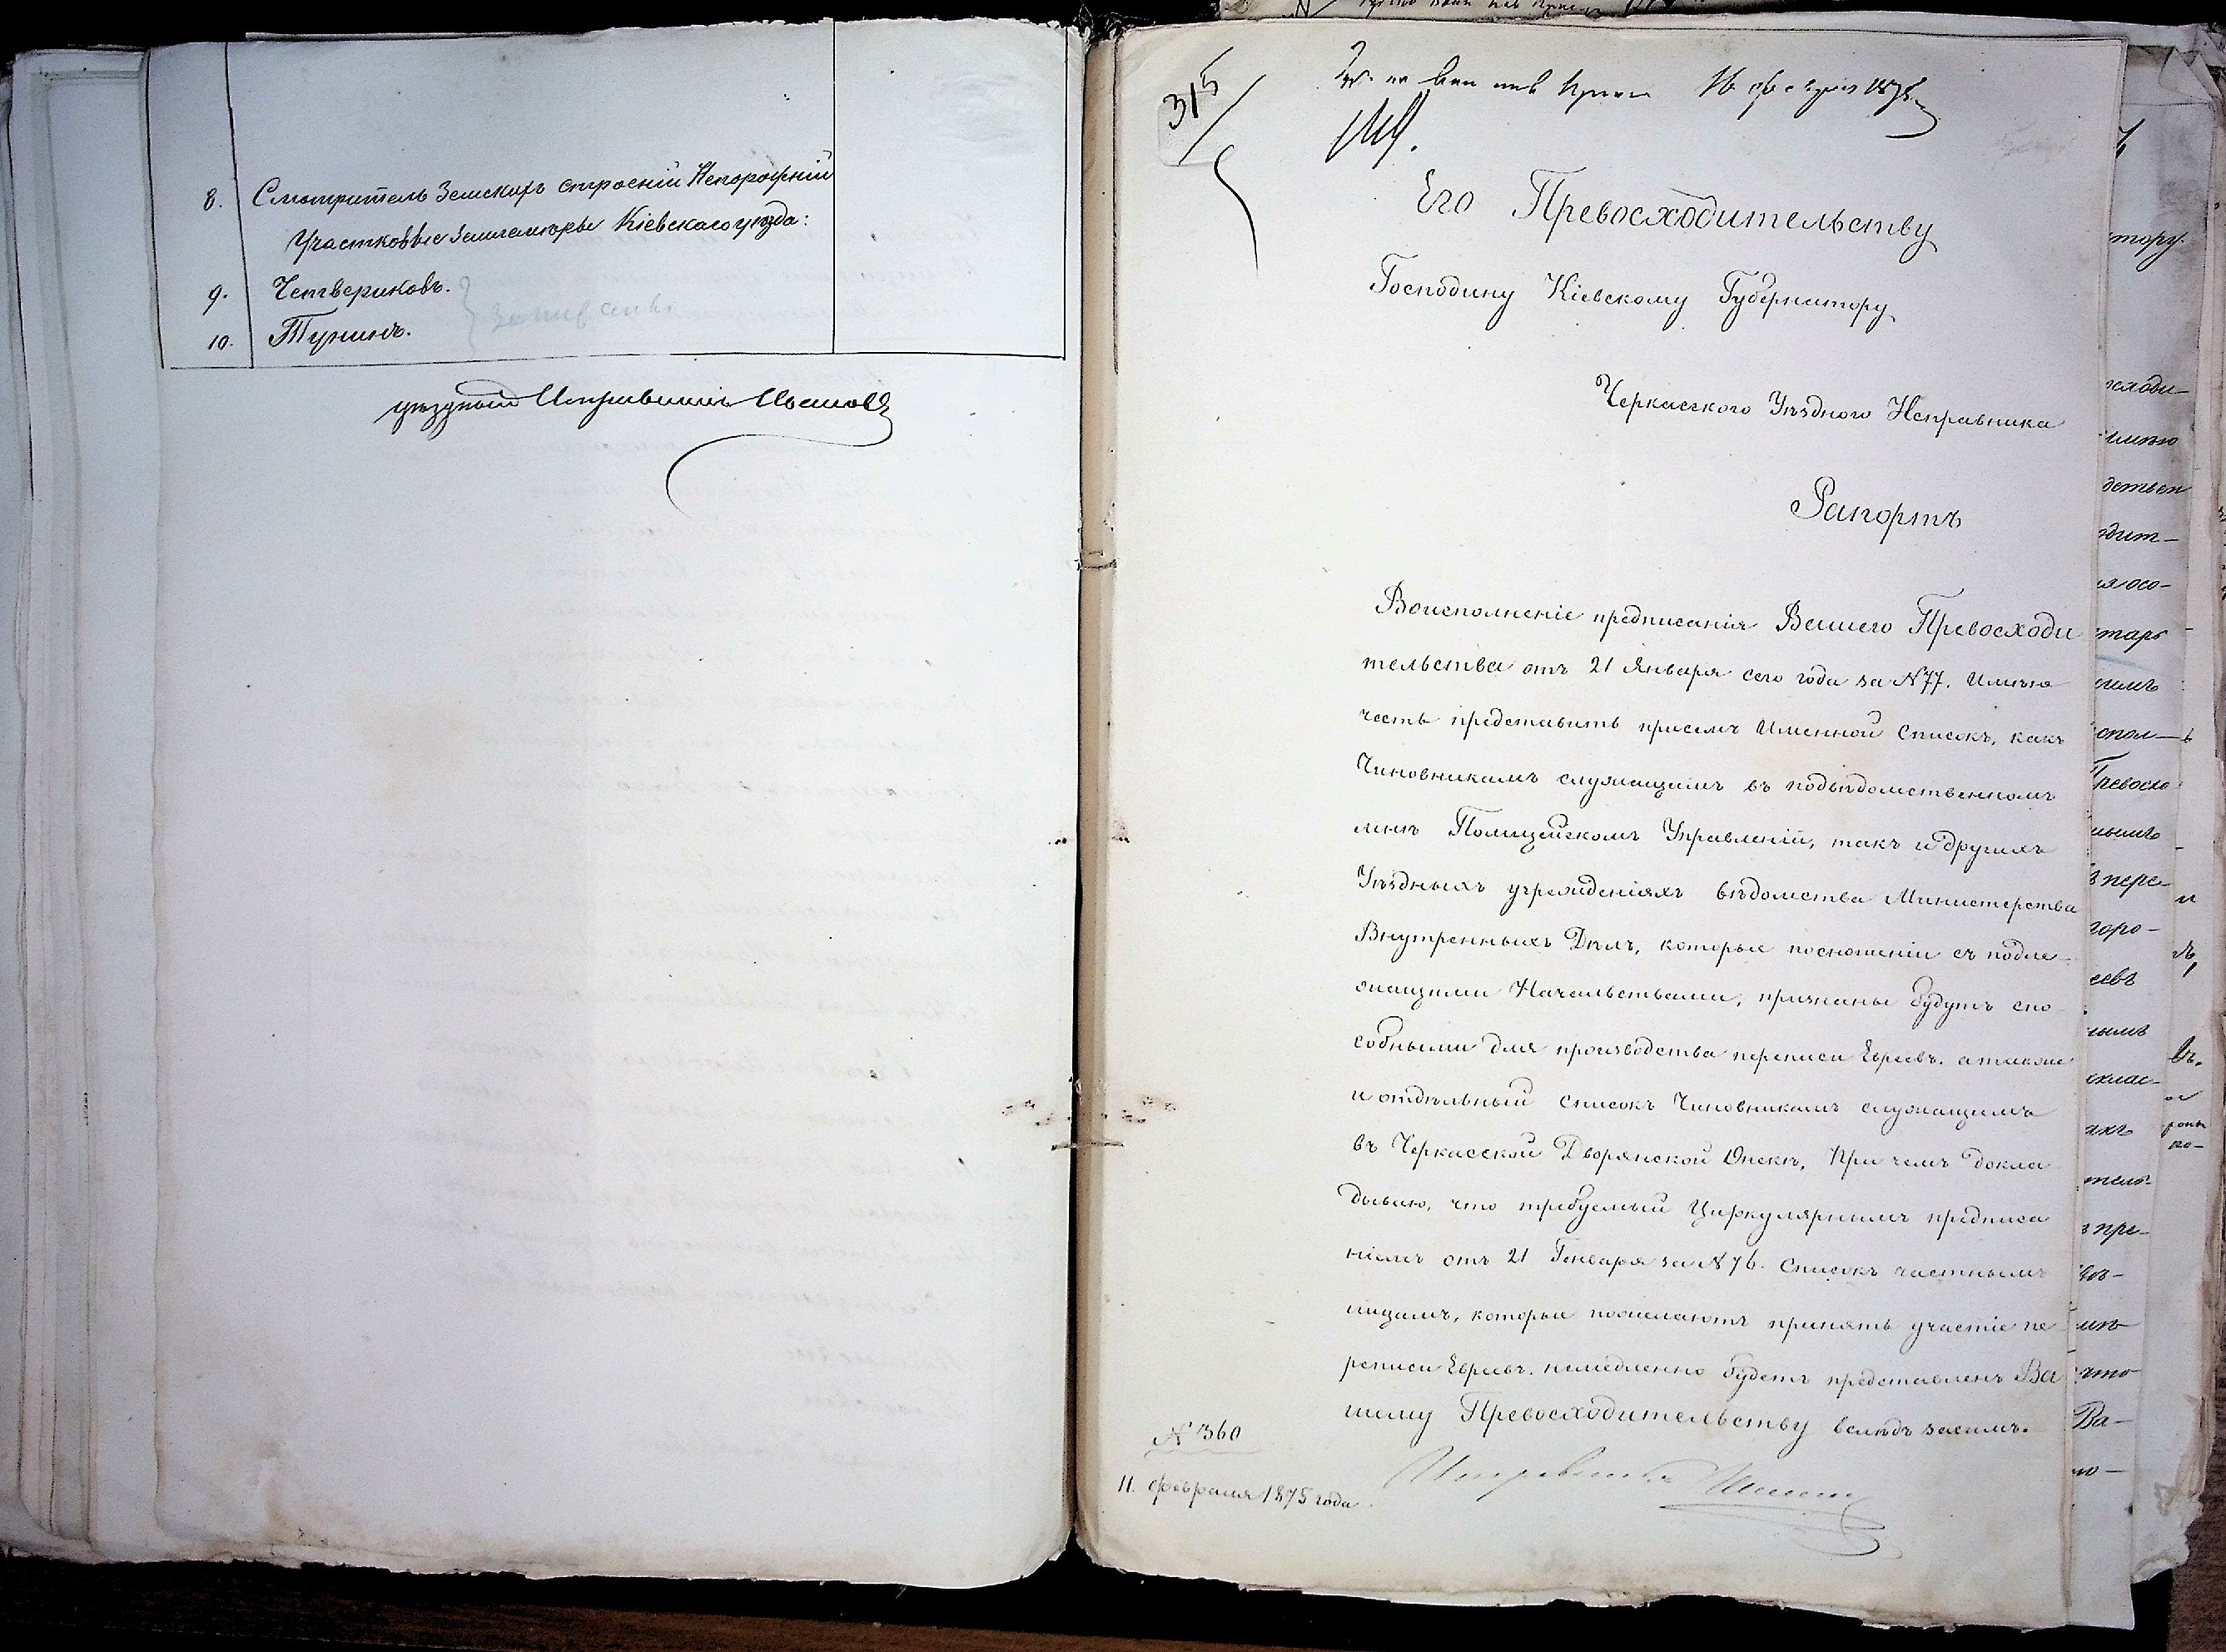 8. Смотритель Земскихъ строеній Непорожній
Участковые Землемѣры Кіевскаго уѣзда:
9. Четвериковъ.
10. Тунинъ.
уѣздный Исправникъ Ивановъ
315
Его Превосходительству
Господину Кіевскому Губернатору
Черкасскаго Уѣзднаго Исправника
Рапортъ
Воисполненіе предписанія Вашего Превосходи
тельства отъ 21 Января сего года за N 77. Имѣю
честь представить присемъ Именной Списокъ, какъ
Чиновникамъ служащимъ въ подвѣдомственномъ
мнѣ Полицейскомъ Управленіи, такъ и другихъ
Уѣздныхъ учрежденіяхъ вѣдомства Министерства
Внутренныхъ Дѣлъ, которые посношеніи съ подле-
жащими Начальствами, признаны будутъ спо
собными для производства переписи Евреевъ. атакже
и отдѣльный Списокъ Чиновникамъ служащимъ
въ Черкасской Дворянской Опекѣ, При чемъ докла
дываю, что требуемый Циркулярнымъ предписа
ніемъ отъ 21 Генваря за N 76. Списокъ частнымъ
лицамъ, которые пожелаютъ принять участіе пе
реписи Евреевъ. немедленно будетъ представленъ Ва
шему Превосходительству вслѣдъ засимъ.
Исправникъ
N 360
11. февраля 1875 года.